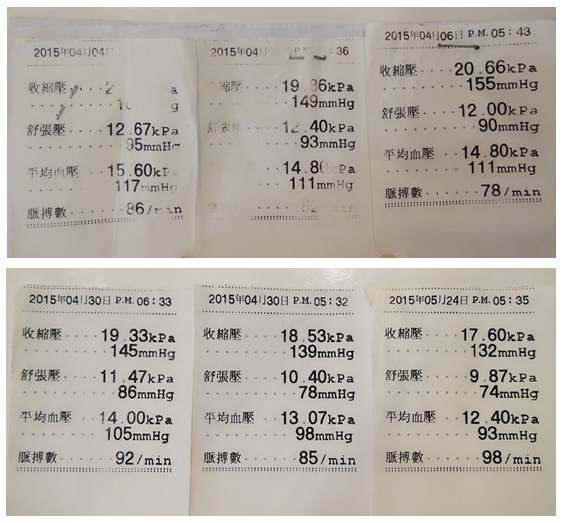 2015年04月04日
收縮壓
舒張壓 12.67kPa
95mmHg
平均血壓 15.60kPa
117mmHg
脈搏數 86/min
2015年04月 36
縮壓 19.86kPa
149mmHg
舒張 12.40kPa
93mmHg
14.80 Pa
111mmHg
2015年04月06日 P.M. 05:43
收縮壓 20.66kPa
155mmHg
舒張壓 12.00kPa
90mmHg
平均血壓 14.80kPa
111mmHg
脈搏數 78/min
2015年04月30日 P.M. 06:33
收縮壓 19.33kPa
145mmHg
舒張壓 11.47kPa
86mmHg
平均血壓 14.00kPa
105mmHg
脈搏數 92/min
2015年04月30日 P.M. 05:32
收縮壓 18.53kPa
139mmHg
舒張壓 10.40kPa
78mmHg
平均血壓 13.07kPa
98mmHg
脈搏數 85/min
2015年05月24日 P.M. 05:35
收縮壓 17.60kPa
132mmHg
舒張壓 9.87kPa
74mmHg
平均血壓 12.40kPa
93mmHg
脈搏數 98/min